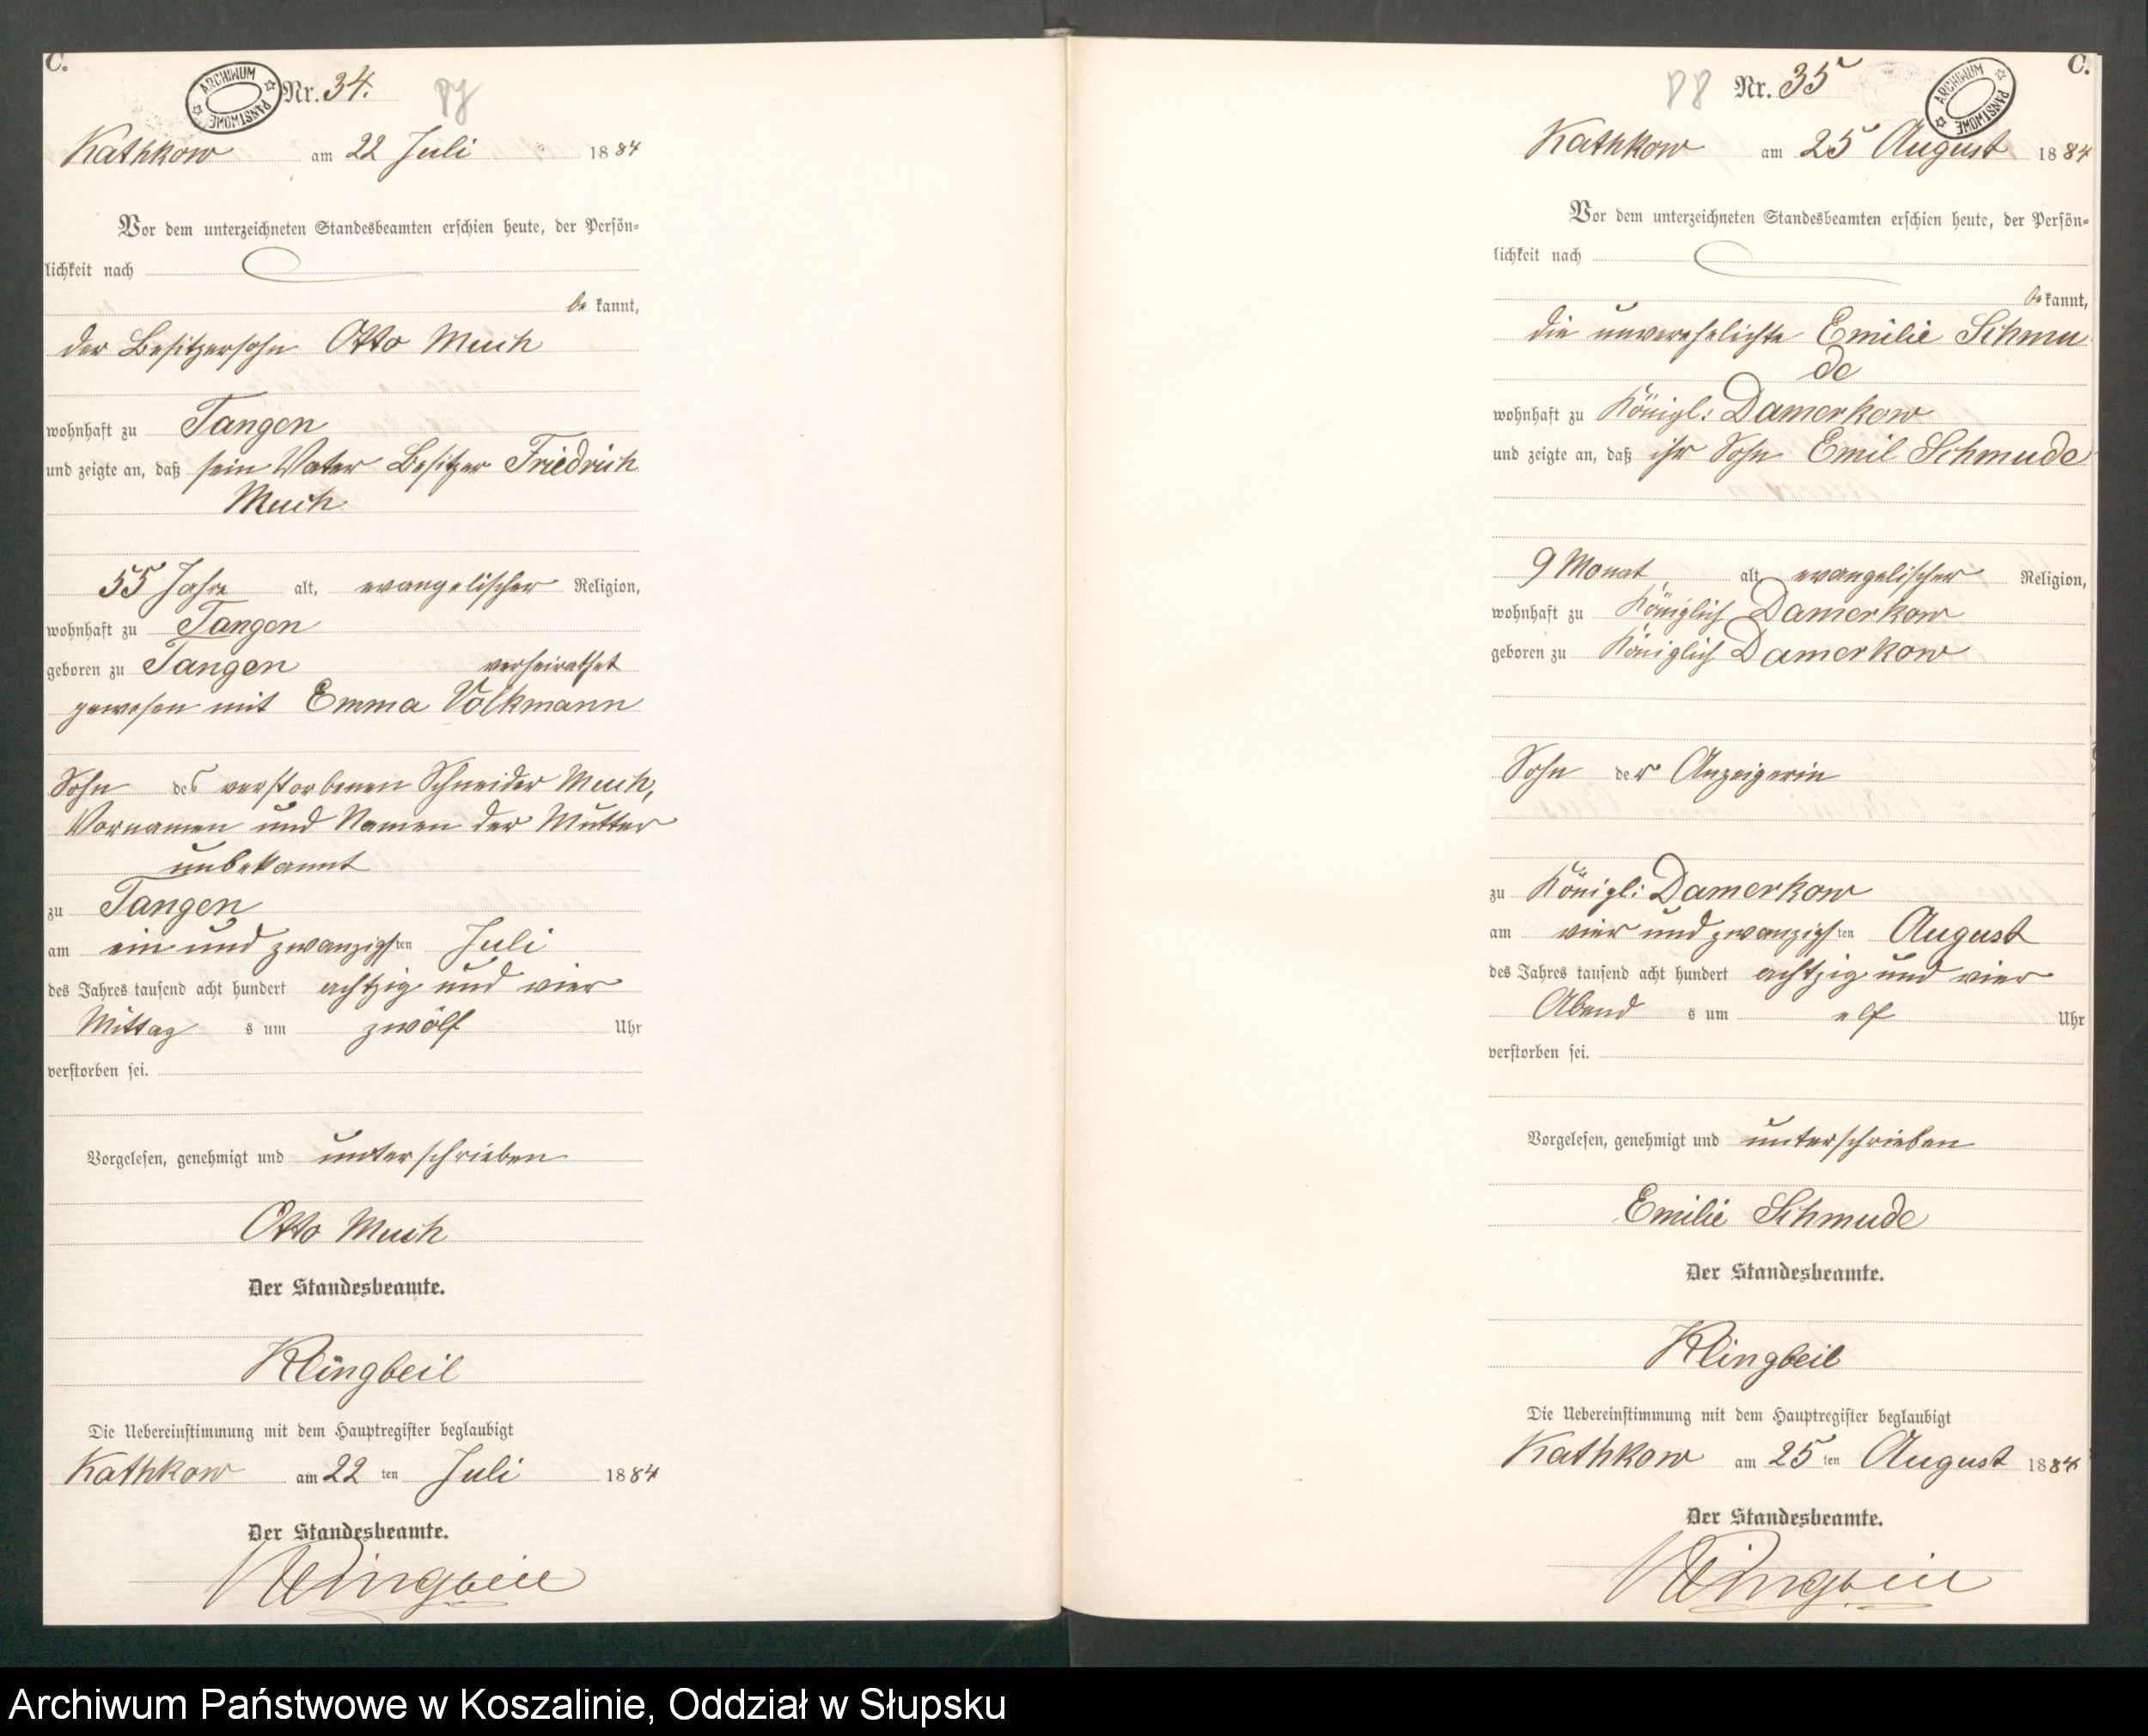 C.
ARCHIWUM PAŃSTWOWE
Nr. 34.
Kathkow am 22 Juli 1884
Vor dem unterzeichneten Standesbeamten erschien heute, der Persön=
lichkeit nach
be kannt,
der Besitzersohn Otto Much
wohnhaft zu Tangen
und zeigte an, daß sein Vater Besitzer Friedrich
Much
55 Jahre alt, evangelischer Religion,
wohnhaft zu Tangen
geboren zu Tangen verheirathet
gewesen mit Emma Volkmann
Sohn des verstorbenen Schneider Much,
Vornamen und Namen der Mutter
unbekannt
zu Tangen
am ein und zwanzigsten Juli
des Jahres tausend acht hundert achtzig und vier
Mittag s um zwölf Uhr
verstorben sei.
Vorgelesen, genehmigt und unterschrieben
Otto Much
Der Standesbeamte.
Klingbeil
Die Uebereinstimmung mit dem Hauptregister beglaubigt
Kathkow am 22 ten Juli 1884
Der Standesbeamte.
Klingbeil
C.
88 Nr. 35
ARCHIWUM PAŃSTWOWE
Kathkow am 25 August 1884
Vor dem unterzeichneten Standesbeamten erschien heute, der Persön=
lichkeit nach
be kannt,
die unverehelichte Emilie Schmu
de
wohnhaft zu Königl: Damerkow
und zeigte an, daß ihr Sohn Emil Schmude
9 Monat, alt, evangelischer Religion,
wohnhaft zu Königlich Damerkow
geboren zu Königlich Damerkow
Sohn der Anzeigerin
zu Königl: Damerkow
am vier und zwanzigsten August
des Jahres tausend acht hundert achtzig und vier
Abend s um elf Uhr
verstorben sei.
Vorgelesen, genehmigt und unterschrieben
Emilie Schmude
Der Standesbeamte.
Klingbeil
Die Uebereinstimmung mit dem Hauptregister beglaubigt
Kathkow am 25 ten August 1884
Der Standesbeamte.
Klingbeil
Archiwum Państwowe w Koszalinie, Oddział w Słupsku